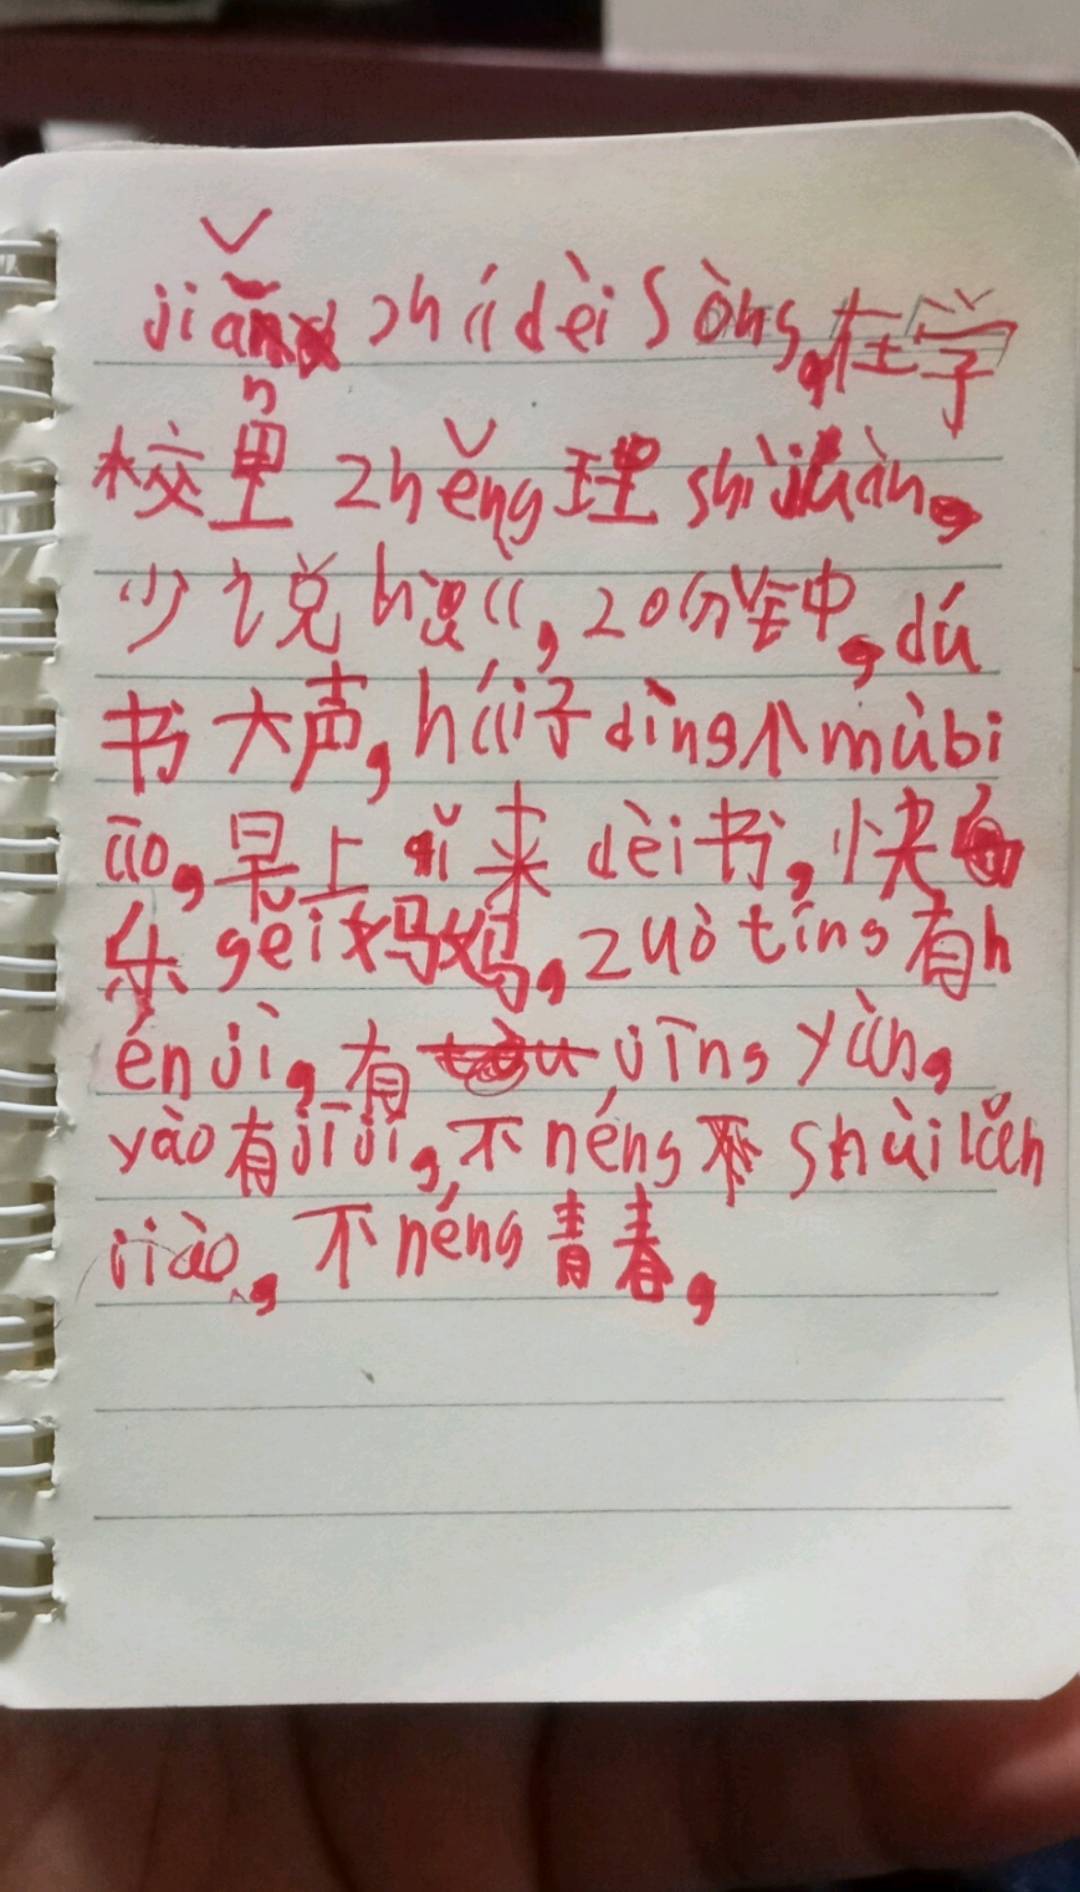 jiǎn zhí dèi sòng,在学
校里 zhěng理 shì juàn,
少说huà,20分钟,dú
书大声,hái子dìng个mùbi
āo,早上qǐ来dèi书,快
乐gěi妈妈,zuò tíng有h
én jì,有jīng yàn,
yào有jī jí,不néng shùi lǎn
jiào,不néng青春,